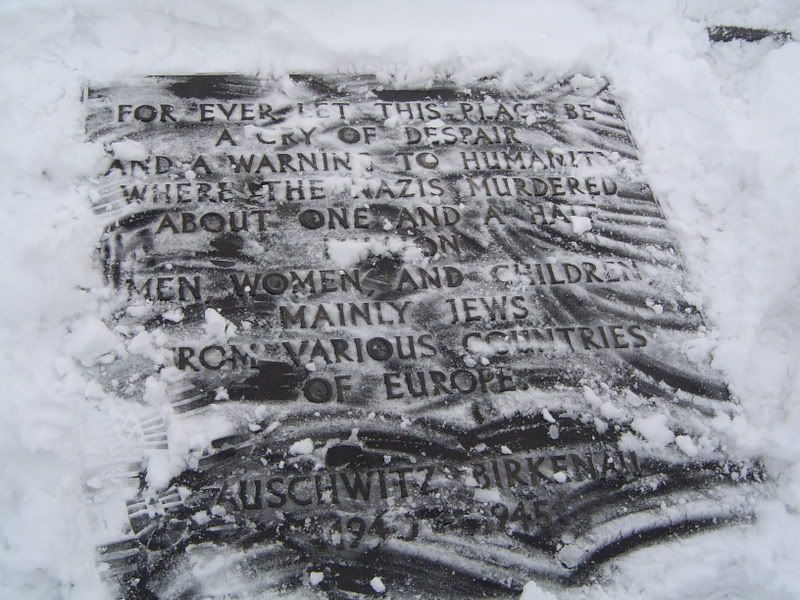 FOR EVER LET THIS PLACE BE
A CRY OF DESPAIR
AND A WARNING TO HUMANITY
WHERE THE NAZIS MURDERED
ABOUT ONE AND A HALF
MEN, WOMEN, AND CHILDREN
MAINLY JEWS
FROM VARIOUS COUNTRIES
OF EUROPE.
AUSCHWITZ - BIRKENAU
1940 - 1945